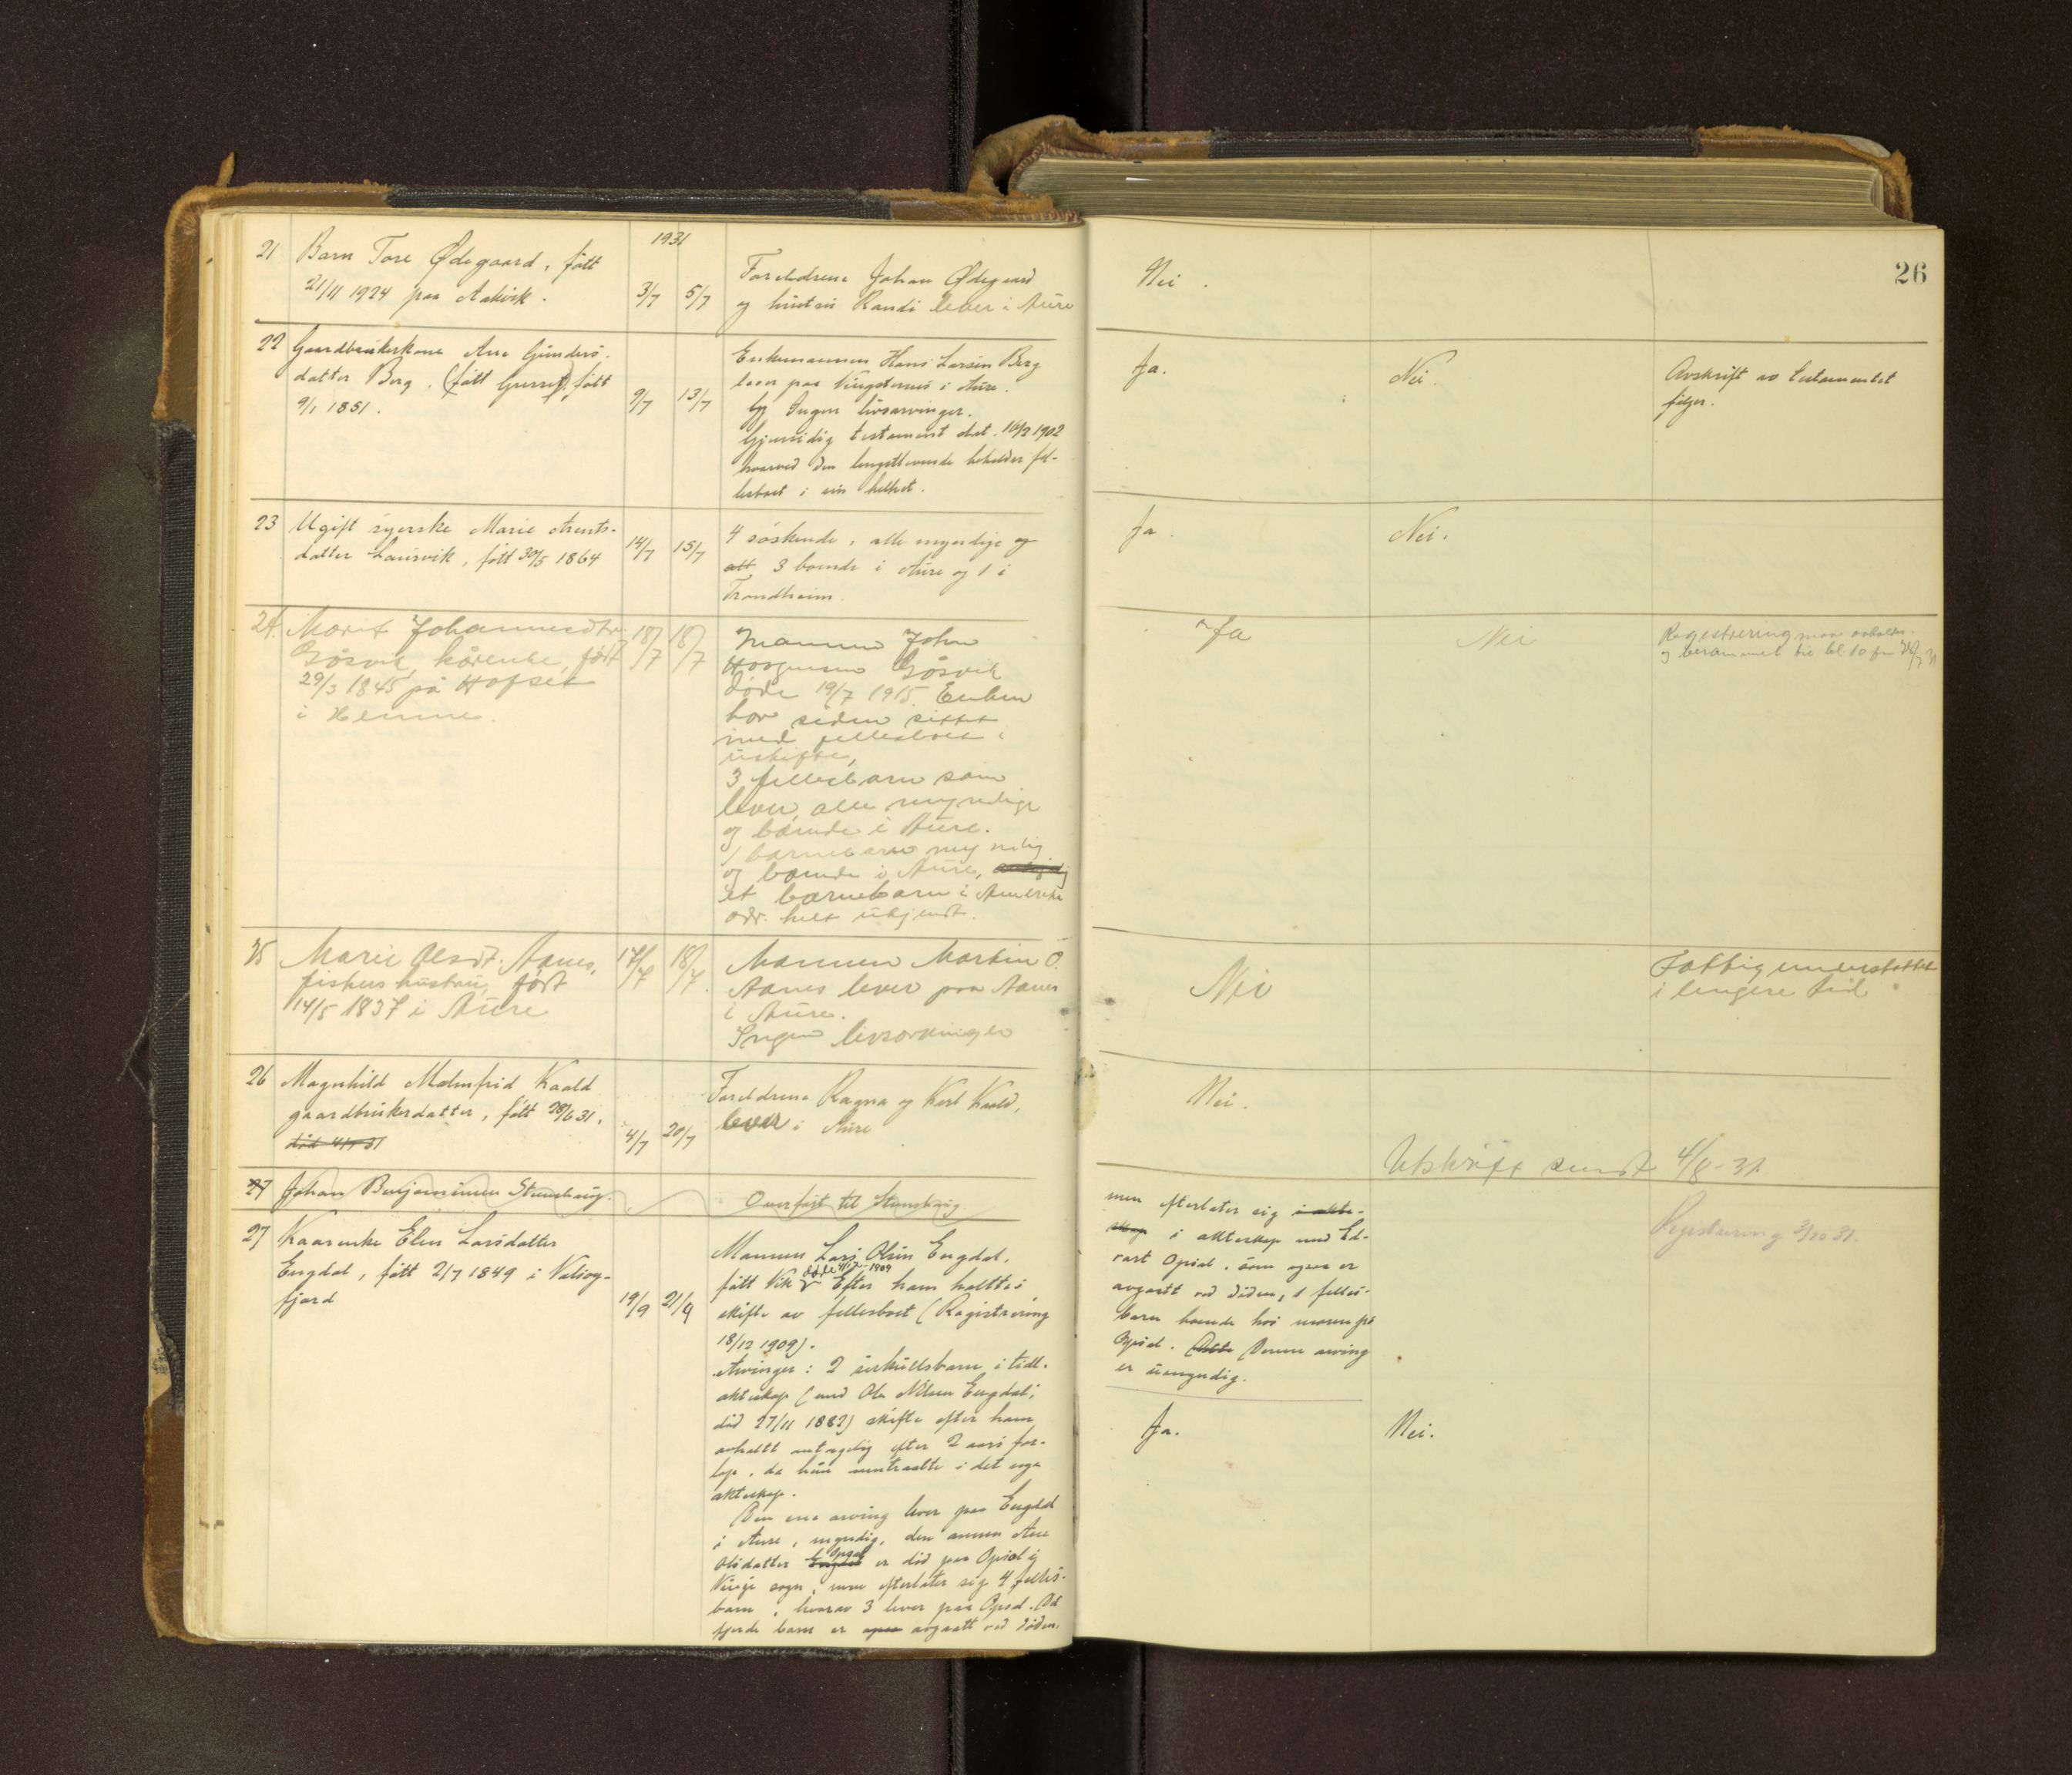 1931
21 Barn Tore Ødegaard, født
21/11 1924 paa Aakvik.
3/7 5/7
Foreldrene Johan Ødegaard
og hustru Randi lever i Aure
Nei.
26
22 Gaardbrukerkone Ane Gunders-
datter Berg. (født Gurset), født
9/1 1851.
9/7 13/7
Enkemannen Hans Larsen Berg
lever paa Ringsternes i Aure.
Ingen livsarvinger.
Gjensidig testament dat. 10/2 1902
hvorved den lengstlevende beholder fel-
lesboet i sin helhet.
Ja.
Nei.
Avskrift av testamentet
følger.
23 Ugift syerske Marie Arents-
datter Laurvik, født 30/5 1864
14/7 15/7
4 søskende, alle myndige og
3 boende i Aure og 1 i
Trondheim.
Ja.
Nei.
24. Marit Johannesdtr.
Gåsvik, kårenke, født
29/3 1845 på Hofset
i Hemne.
18/7 18/7
Mannen John
Gåsvik
døde 19/7 1915. Enken
har siden sittet
med fellesboet i
uskifte,
3 fellesbarn som
lever, alle myndige
og boende i Aure.
1 barnebarn myndig
og boende i Aure,
et barnebarn i Amerika
adr. helt ukjendt.
Ja
Nei
Registrering maa avholdes
og berammet til kl 10 fm
25 Marie Olsdt. Aanes,
fiskers hustru, født
14/5 1837 i Aure
17/7 18/7.
Mannen Martin O.
Aanes lever paa Aanes
i Aure.
Ingen livsarvinger
Nei
Fattigunderstøttet
i lengere tid.
26 Magnhild Malmfrid Kaald
gaardbrukerdatter, født 28/6 31.
død 4/7 31
4/7 20/7
Foreldrene Ragna og Karl Kaald,
lever i Aure
Nei.
Utskrift sendt 4/8-31
27 Johan Benjaminsen Stemshaug.
Overført til Stemshaug.
27 Kaarenke Elen Larsdatter
Engdal, født 2/7 1849 i Valsøy-
fjord
19/9 21/9
Mannen Lars Olsen Engdal,
døde 4/12-1909
født Vik Efter ham holttes
skifte av fellesboet (Registrering
18/12 1909).
Arvinger: 2 særkullsbarn i tidl.
akteskap (med Ole Nilsen Engdal;
død 27/11 1882) skifte efter ham
avholtt antagelig efter 2 aars for-
løp, da hun inntraatte i det nye
akteskap.
Den ene arving lever paa Engdal
i Aure, myndig, den annen Ane
Opsal
Olsdatter Engdal er død paa Opsal i
Vinje sogn, men efterlater sig 4 felles-
barn, hvorav 3 lever paa Opsal. Det
fjerde barn er avgaatt ved døden,
men efterlater sig i akte-
skap i akteskap med Ed-
vart Opsal, som er
avgaatt ved døden, 1 felles-
barn boende hos moren på
Opsal. Denne arving
er umyndig.
Registrering 3/10 31.
Ja.
Nei.